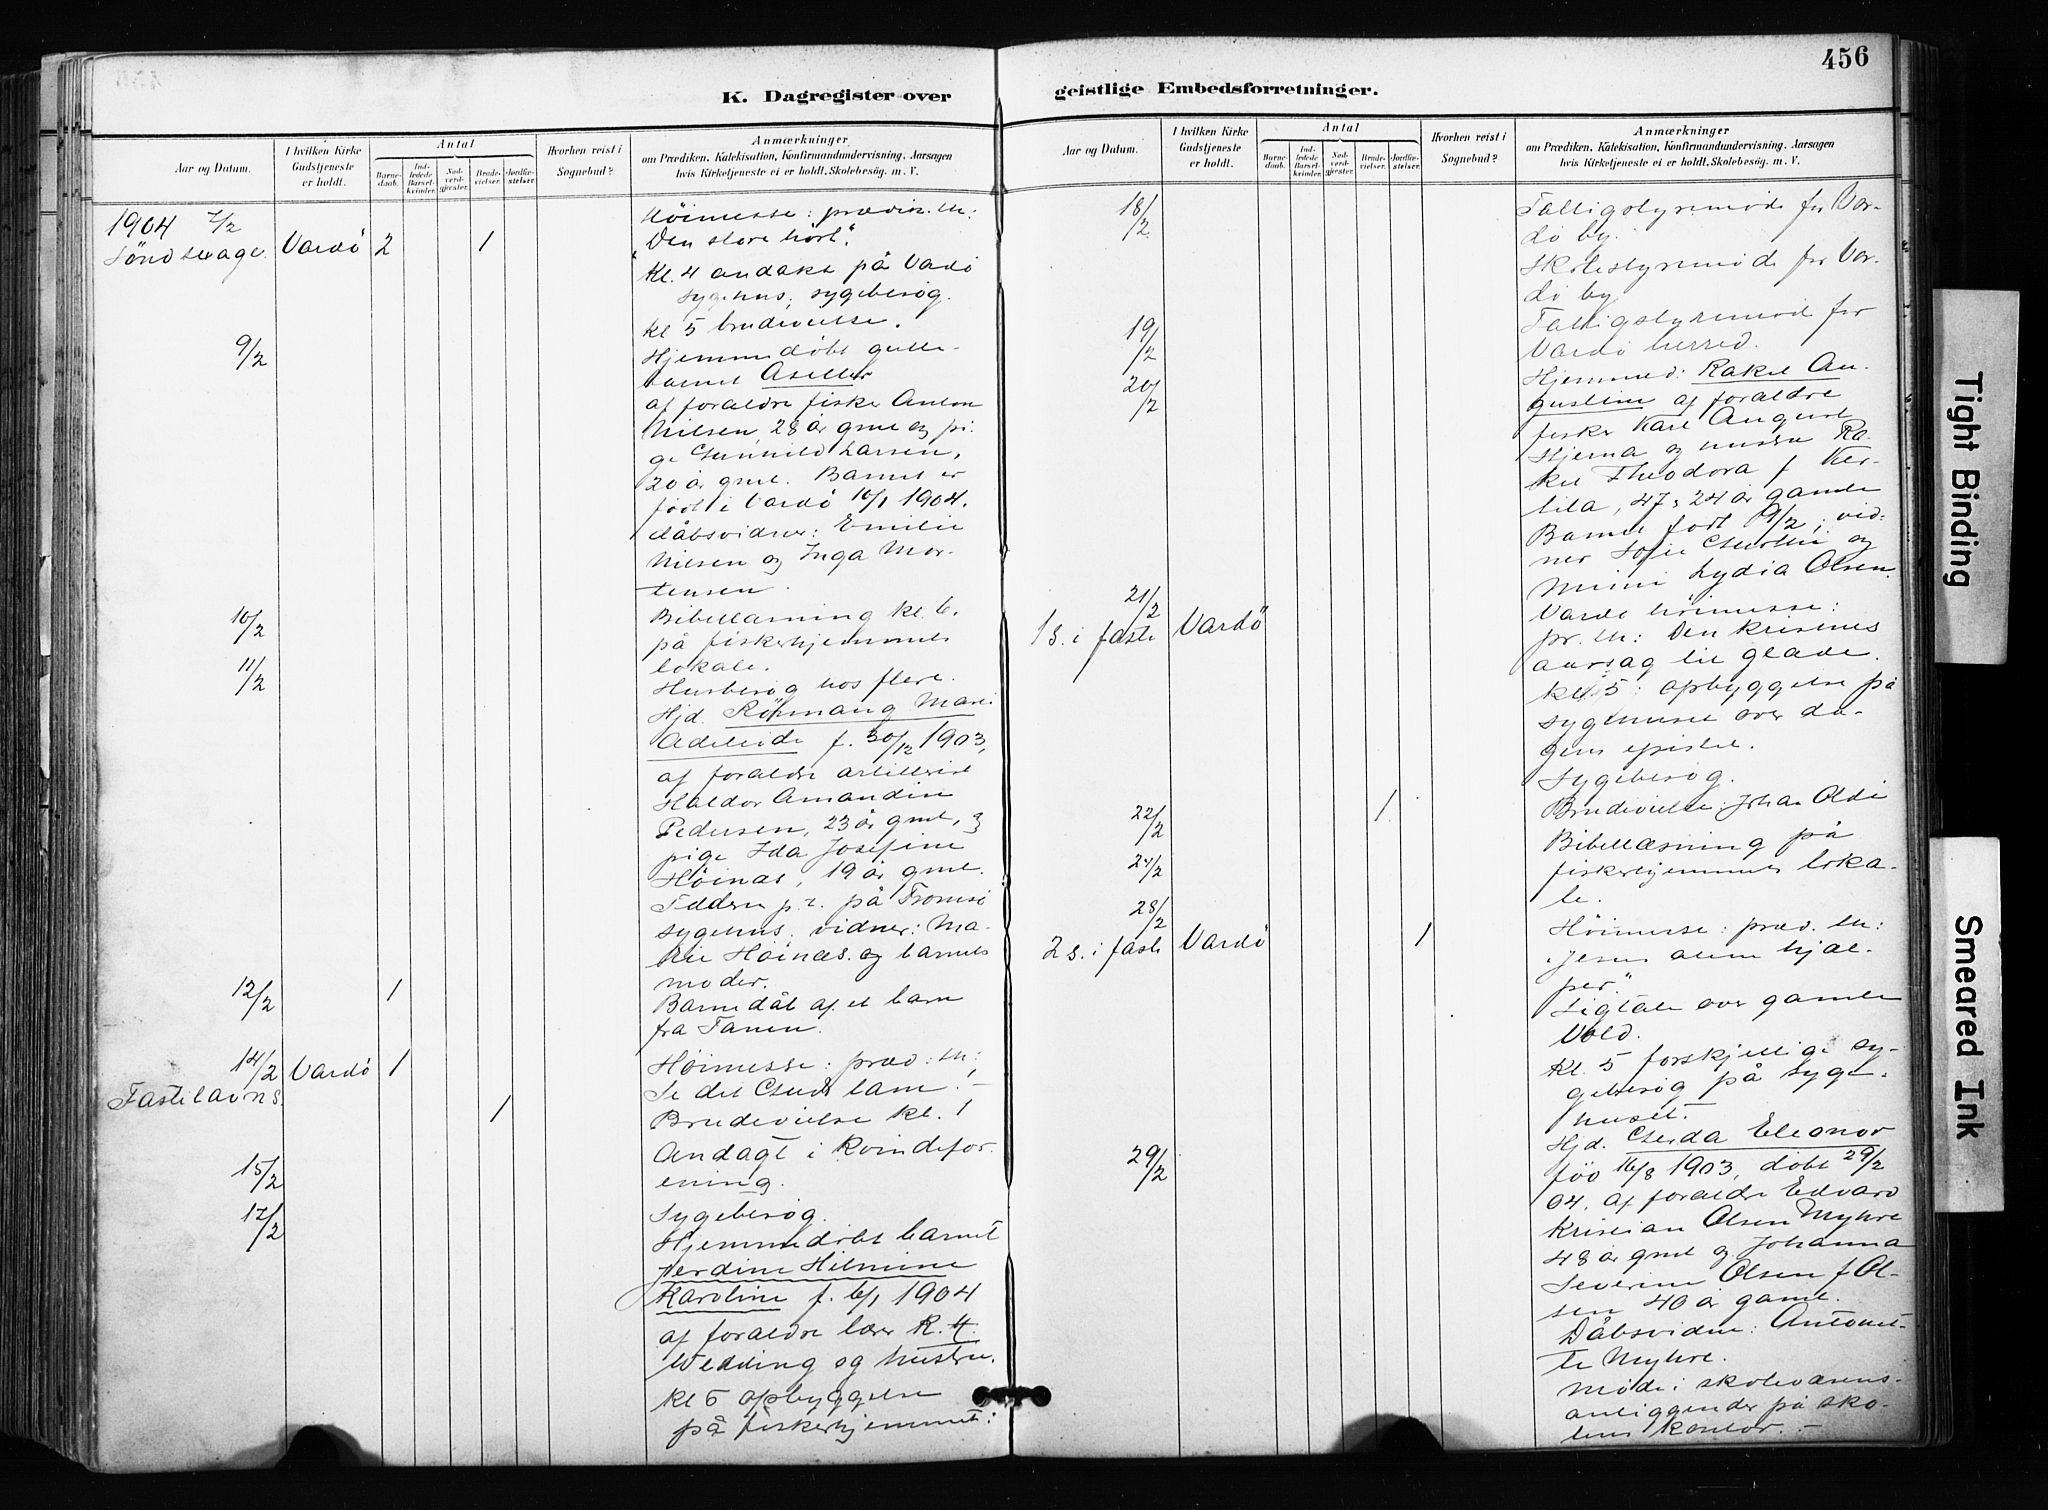 456
K. Dagregister over geistlige Embedsforretninger.
Aar og Datum.
I hvilken Kirke Gudstjeneste er holdt.
Antal
Barnedaab.
Indledede Barselkvinder.
Nødverdgjester.
Brudevielser.
Jordfæstelser.
Hvorhen reist i Sognebud?
Anmærkninger
om Prædiken, Katekisation, Konfirmandundervisning, Aarsagen
hvis Kirketjeneste ei er holdt, Skolebesøg, m. V.
1904 7/2
Sönd sexage. Vardö 2 1
Höimesse: prædik. th:
"Den store hört".
Kl. 4 andakt på Vardö
sygehus, sygebesög.
Kl 5 brudevielse.
9/2
Hjemmedöbt gutte-
barnet
af foraldre fisker Anton
Nilsen, 28 år gml og pi-
ge Gunnild Larsen,
20 år gml. Barnet er
född i Vardö 10/1 1904.
dåbsvidner: Emilie
Nilsen og Inga Mor-
tensen.
10/2
Bibellæsning kl. 6.
på fiskerhjemmets
lokale.
11/2
Husbesög hos flere.
Hjd. Marie
Adeleide f. 30/12 1903,
af foraldre artillerist
Haldor Amandin
Pedersen, 23 år gml, og
pige Ida Josefine
Höinæs, 19 år gml.
Fadderen p. t. på Tromsö
sygehus; vidner: Ma-
rie Höinæs og barnets
moder.
12/2 1
Barnedåb af et barn
fra Tanen.
14/2 Vardö 1
Fastelavns.
Höimesse: præd. th:
Se det Guds lam. -
1
Brudevielse kl. 1
Andagt i kvindefor-
ening.
15/2
Sygebesög.
17/2
Hjemmedöbt barnet
Jerdine Hilmine
Karoline f. 6/1 1904
af foraldre lærer K. H.
Wedding og hustru.
Kl 5 opbyggelse
på fiskerhjemmet:
Aar og Datum.
I hvilken Kirke Gudstjeneste er holdt.
Antal
Barnedaab.
Indledede Barselkvinder.
Nødverdgjester.
Brudevielser.
Jordfæstelser.
Hvorhen reist i Sognebud?
Anmærkninger
om Prædiken, Katekisation, Konfirmandundervisning, Aarsagen
hvis Kirketjeneste ei er holdt, Skolebesøg, m. V.
18/2
Fattigstyremöde for Var-
dö by.
Skolestyremöde for Var-
dö by
19/2
Fattigstyremöd for
Vardö herred.
20/2
Hjemmed: Rakel Au-
gustine af foraldre
fisker Karl August
Hjerna og hustru Ra-
kel Theodora f
47 & 24 år gamle
Barnet född 19/2; vid-
ner Sofie og
Mimi Lydia Olsen.
21/2
1 s. i faste Vardö
Vardö höimesse:
pr. th: Den kristnes
aarsag til glæde.
Kl. 5: opbyggelse på
sygehuset over da-
gens epistel.
Sygebesög.
22/2 1
Brudevielse: Johan Oldi
24/2
Bibellæsning på
fiskerhjemmets loka-
le.
28/2
2 s. i faste Vardö 1
Höimesse: præd. th:
"Jesus alene hjæl-
per."
Ligtale over gamle
Vold.
Kl. 5 forskjellige sy-
gebesög på syge-
huset.
29/2
Hjd. Gerda Eleonor
föd 16/8 1903, döbt 29/2
04, af foraldre Edvard
Kristian Olsen Myhre
48 år gml og Johanna
Severine Olsen f Ol-
sen 40 år gaml.
Dåbsvidne: Antonet-
te Myhre.
Möde i skolevæsens-
anliggender på sko-
lens kontor. -
Tight Binding
Smeared Ink